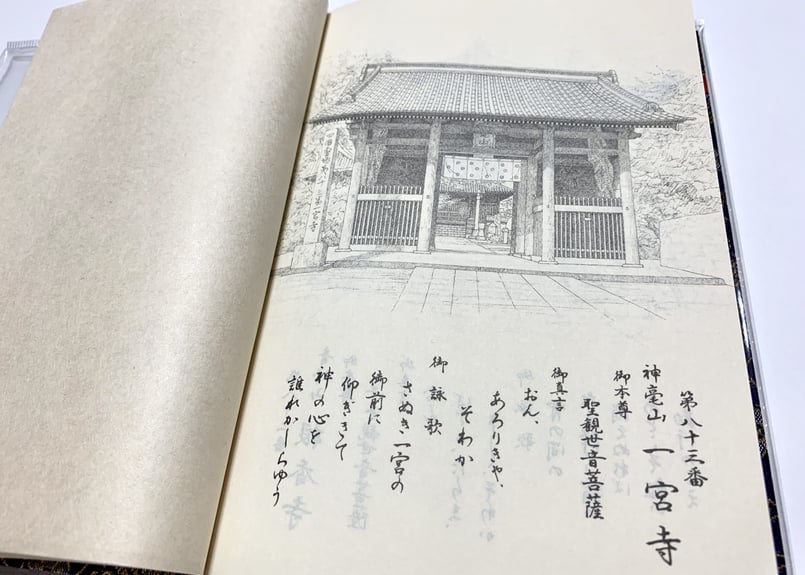 第八十三番
神毫山 一宮寺
御本尊
聖観世音菩薩
御真言
おん、
あろりきや、
そわか
御詠歌
さぬき一宮の
御前に
仰ぎきて
神の心を
誰れかしらゆう